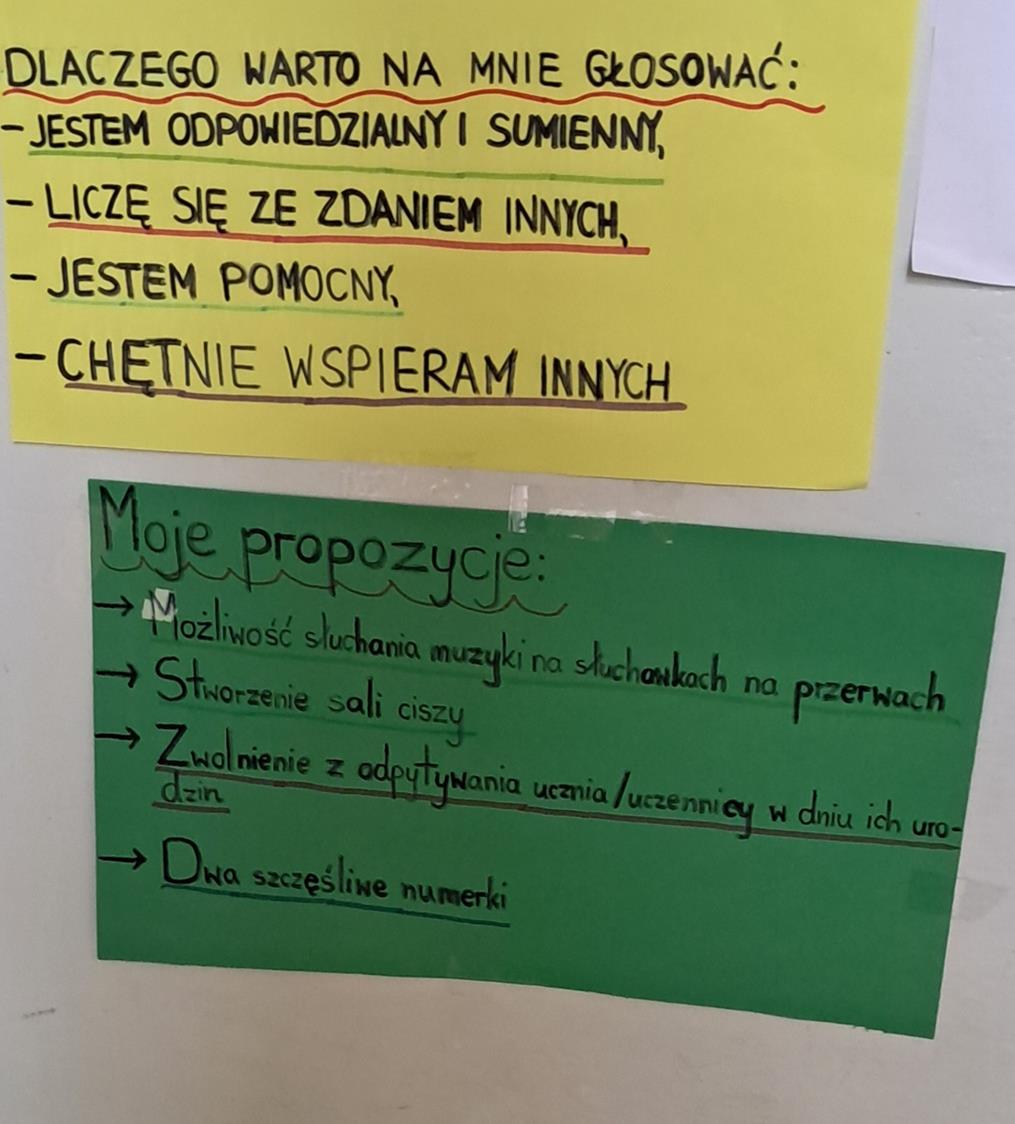 DLACZEGO WARTO NA MNIE GŁOSOWAĆ:
– JESTEM ODPOWIEDZIALNY I SUMIENNY,
– LICZĘ SIĘ ZE ZDANIEM INNYCH,
– JESTEM POMOCNY,
– CHĘTNIE WSPIERAM INNYCH
Moje propozycje:
→ Możliwość słuchania muzyki na słuchawkach na przerwach
→ Stworzenie sali ciszy
→ Zwolnienie z odpytywania ucznia/uczennicy w dniu ich uro-
dzin
→ Dwa szczęśliwe numerki